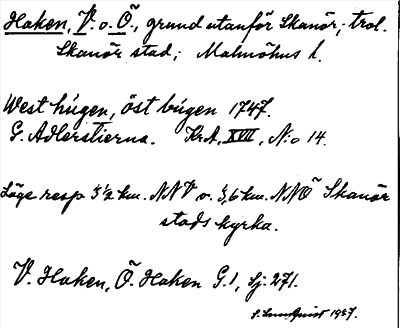 Haken, V. o. Ö., grund utanför Skanör; trol.
Skanör stad; Malmöhus l.
West hügen, öst bügen 1747.
G. Adlerstierna. Kr.A., XVII, N:o 14.
Läge resp 3 ½ km. NNV o. 3,6 km. NNÖ Skanör
stads kyrka.
V. Haken, Ö. Haken G. 1, Sj. 271.
1927.